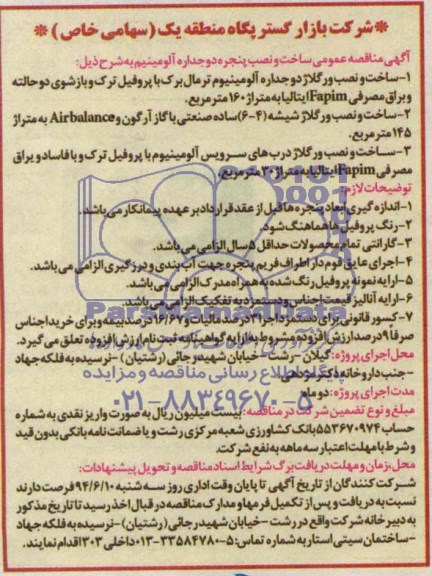 * شرکت بازار گستر پگاه منطقه یک (سهامی خاص) *
آگهی مناقصه عمومی ساخت و نصب پنجره دوجداره آلومینیم به شرح ذیل:
۱-ساخت و نصب ورگلاژ دوجداره آلومینیوم ترمال برک با پروفیل ترک و بازشوی دوحالته
و یراق مصرفی Fapim ایتالیا به متراژ ۱۶۰ متر مربع.
۲-ساخت و نصب ورگلاژ شیشه (۴-۶) ساده صنعتی با گاز آرگون و Airbalance به متراژ
۱۴۵ متر مربع.
۳-ساخت و نصب ورگلاژ درب های سرویس آلومینیوم با پروفیل ترک و با فاساد و یراق
مصرفی Fapim ایتالیا به متراژ ۳۰ متر مربع.
توضیحات لازم:
۱-اندازه گیری ابعاد پنجره ها قبل از عقد قرارداد بر عهده پیمانکار می باشد.
۲-رنگ پروفیل ها هماهنگ شود.
۳-گارانتی تمام محصولات حداقل ۵ سال الزامی می باشد.
۴-اجرای عایق فوم دار اطراف فریم پنجره جهت آب بندی و درزگیری الزامی می باشد.
۵-ارایه نمونه پروفیل رنگ شده به همراه مدرک الزامی می باشد.
۶-ارایه آنالیز قیمت اجناس و دستمزد به تفکیک الزامی می باشد.
۷-کسور قانونی برای دستمزد اجرا ۳ درصد مالیات و ۱۶/۶۷ درصد بیمه و برای خرید اجناس
صرفاً ۹ درصد ارزش افزوده مشروط به ارایه گواهینامه ثبت نام ارزش افزوده تعلق می گیرد.
محل اجرای پروژه: گیلان -رشت- خیابان شهید رجائی (رشتیان) -نرسیده به فلکه جهاد
-جنب داروخانه دکتر مؤدهی
مدت اجرای پروژه: دو ماه
مبلغ و نوع تضمین شرکت در مناقصه: بیست میلیون ریال به صورت واریز نقدی به شماره
حساب ۵۵۳۶۷۰۹۷۴ بانک کشاورزی شعبه مرکزی رشت و یا ضمانت نامه بانکی بدون قید
و شرط با مهلت اعتبار سه ماهه به نفع شرکت.
محل، زمان و مهلت دریافت برگ شرایط اسناد مناقصه و تحویل پیشنهادات:
شرکت کنندگان از تاریخ آگهی تا پایان وقت اداری روز سه شنبه ۹۴/۶/۱۰ فرصت دارند
نسبت به دریافت و پس از تکمیل فرمها و مدارک مناقصه در قبال اخذ رسید تا تاریخ مذکور
به دبیرخانه شرکت واقع در رشت -خیابان شهید رجائی (رشتیان) -نرسیده به فلکه جهاد
-ساختمان سیتی استار به شماره تماس: ۵-۳۳۵۸۴۷۸۰-۰۱۳ داخلی ۳۰۳ اقدام نمایند.
ParsNamadData
پایگاه اطلاع رسانی مناقصه و مزایده
۰۲۱-۸۸۳۴۹۶۷۰-۵